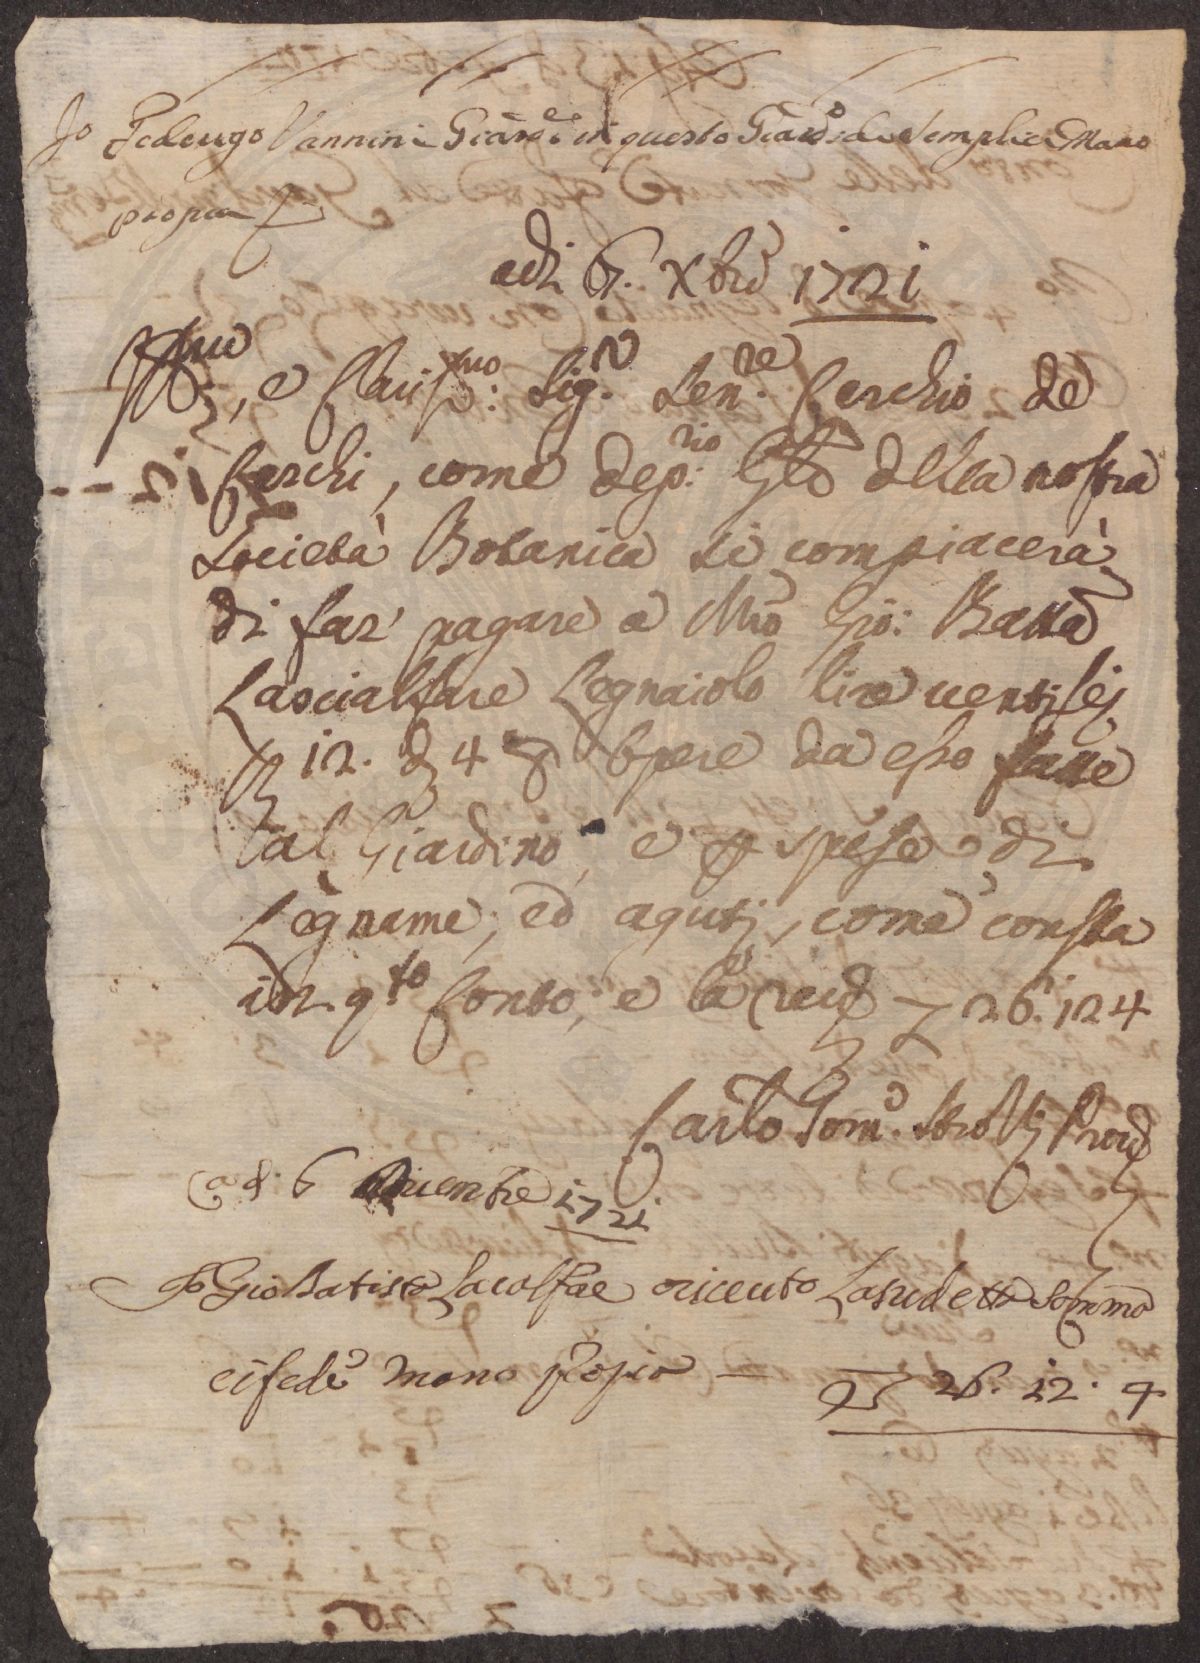 Io Federigo Vannini Giard.e in questo Giard.o de Semplici Mano
propia
adi 6. Xbre 1721
Ill.mo, e Claris.mo: Sig.r Sen.re Cerchio de
Cerchi, come dep.rio: Gle della nostra
Società Botanica si compiacerà
di far' pagare a Mro Gio: Batta
Lascialfare Legnaiolo lire ventisej
12. d 4 p opere da esso fatte
al Giardino, e p spese di
Legname, ed agutj, come consta
in q.to Conto, e la ricev 26.12 4
Carlo Tom.o Strozzj Provd
a d 6 dicenbre 1721
Io Gio Batista Lacialfae oriceuto La sudetta Somma
eifede mano propio — 26. 12. 4